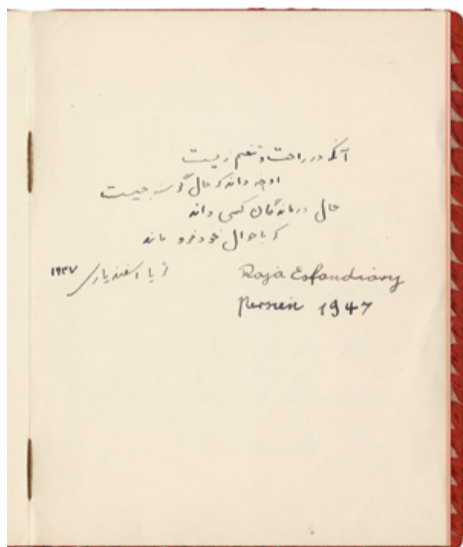 آنکه در راحت و تنعم زیست
او چه داند که حال گرسنه چیست
حال درماندگان کسی داند
که باحوال خود فرو ماند
اسفندیاری ۱۹۴۷
Raja Esfandiary
Persien 1947